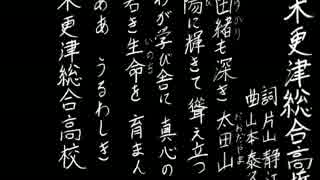 木更津総合高校
詞 片山 静江
曲 山本 泰久
由緒も深き 太田山
陽に輝きて 聳え立つ
わが学び舎に 真心の
若き生命を 育まん
ああ うるわしき
木更津総合高校